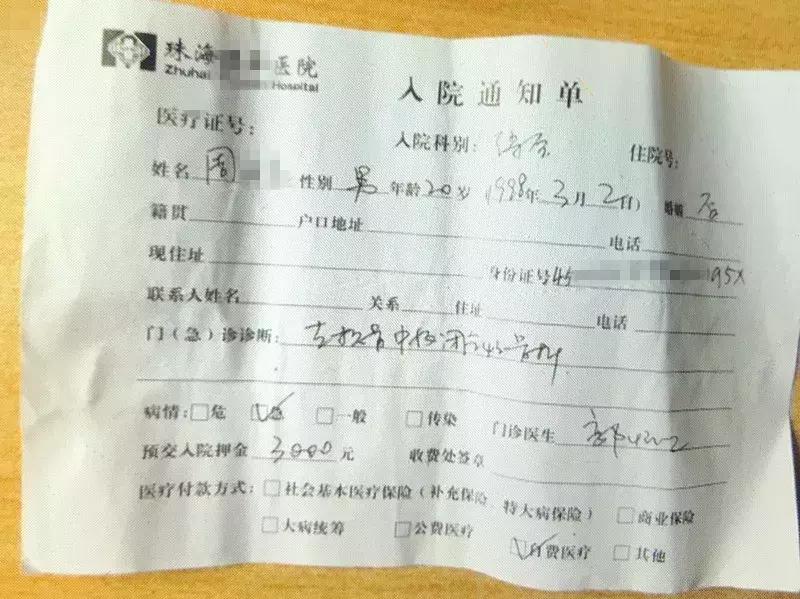 珠海 医院
Zhuhai Hospital
入院通知单
医疗证号: 入院科别: 住院号:
姓名 周 性别 男 年龄 20 岁 (1998年 3月 2日) 婚姻 否
籍贯 户口地址 电话
现住址 身份证号 44 195X
联系人姓名 关系 住址 电话
门(急)诊诊断: 右桡骨中段闭合性骨折
病情: □危 ☑急 □一般 □传染 门诊医生
预交入院押金 3000 元 收费处签章
医疗付款方式: □社会基本医疗保险(补充保险、特大病保险) □商业保险
□大病统筹 □公费医疗 ☑自费医疗 □其他